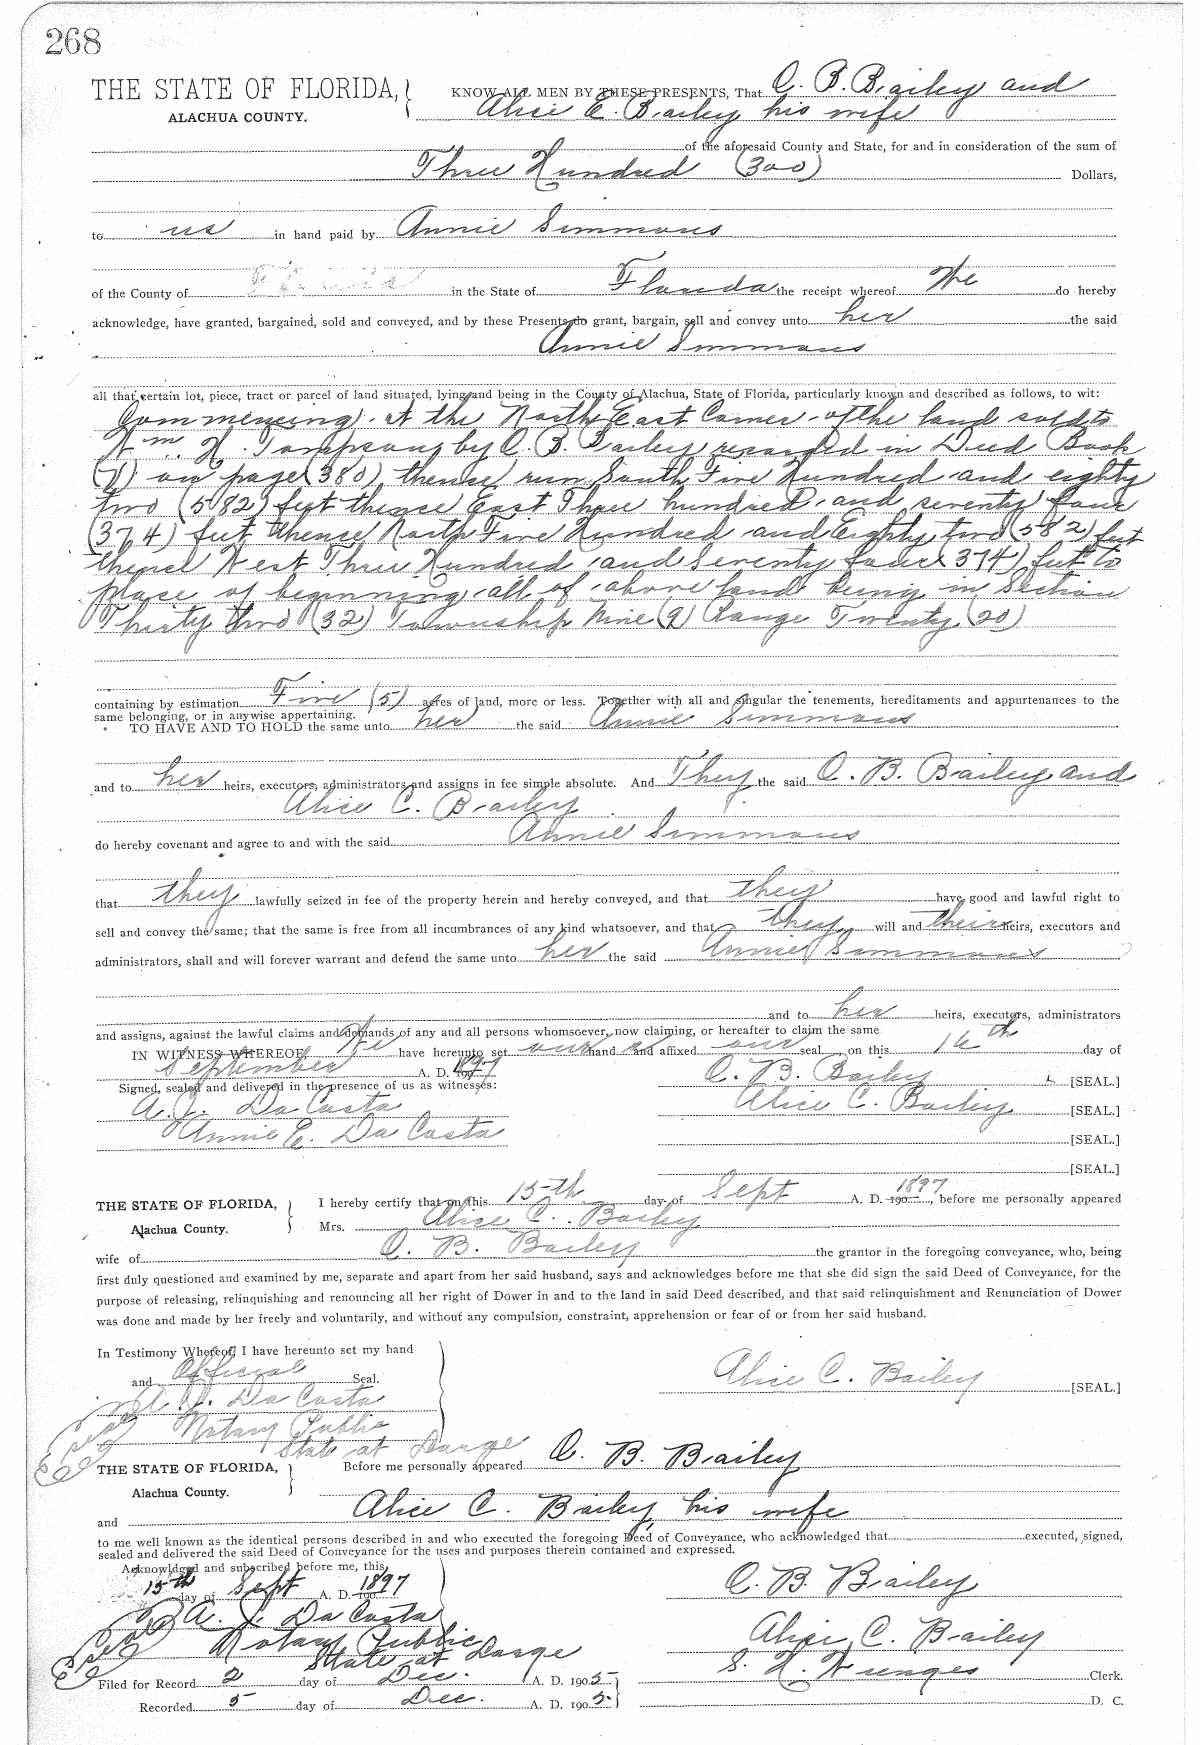 268
THE STATE OF FLORIDA,
ALACHUA COUNTY.
KNOW ALL MEN BY THESE PRESENTS, That C. B. Bailey and
Alice E. Bailey his wife
of the aforesaid County and State, for and in consideration of the sum of
Three Hundred (300) Dollars,
to us in hand paid by Annie Simmons
of the County of Florida in the State of Florida the receipt whereof We do hereby
acknowledge, have granted, bargained, sold and conveyed, and by these Presents do grant, bargain, sell and convey unto her the said
Annie Simmons
all that certain lot, piece, tract or parcel of land situated, lying and being in the County of Alachua, State of Florida, particularly known and described as follows, to wit:
Commencing at the North East Corner of the land sold to
Wm. H. by C. B. Bailey recorded in Deed Book
on page (380) thence run South Five Hundred and eighty
two (582) feet thence East Three hundred and seventy four
(374) feet thence North Five Hundred and Eighty two (582) feet
thence West Three Hundred and Seventy four (374) feet to
place of beginning all of above land being in Section
Thirty two (32) Township Nine (9) Range Twenty (20)
containing by estimation Five (5) acres of land, more or less. Together with all and singular the tenements, hereditaments and appurtenances to the
same belonging, or in anywise appertaining.
TO HAVE AND TO HOLD the same unto her the said Annie Simmons
and to her heirs, executors, administrators and assigns in fee simple absolute. And They the said C. B. Bailey and
Alice C. Bailey
do hereby covenant and agree to and with the said Annie Simmons
that they lawfully seized in fee of the property herein and hereby conveyed, and that they have good and lawful right to
sell and convey the same; that the same is free from all incumbrances of any kind whatsoever, and that they will and their heirs, executors and
administrators, shall and will forever warrant and defend the same unto her the said Annie Simmons
and to her heirs, executors, administrators
and assigns, against the lawful claims and demands of any and all persons whomsoever, now claiming, or hereafter to claim the same
IN WITNESS WHEREOF, We have hereunto set our hand s and affixed our seal on this 16th day of
September A. D. 1897
Signed, sealed and delivered in the presence of us as witnesses:
C. B. Bailey [SEAL.]
A. J. Da Costa
Alice C. Bailey [SEAL.]
Annie E. Da Costa
[SEAL.]
[SEAL.]
THE STATE OF FLORIDA,
Alachua County.
I hereby certify that on this 15th day of Sept A. D. 190 1897, before me personally appeared
Mrs. Alice C. Bailey
wife of C. B. Bailey the grantor in the foregoing conveyance, who, being
first duly questioned and examined by me, separate and apart from her said husband, says and acknowledges before me that she did sign the said Deed of Conveyance, for the
purpose of releasing, relinquishing and renouncing all her right of Dower in and to the land in said Deed described, and that said relinquishment and Renunciation of Dower
was done and made by her freely and voluntarily, and without any compulsion, constraint, apprehension or fear of or from her said husband.
In Testimony Whereof, I have hereunto set my hand
and Official Seal.
Alice C. Bailey [SEAL.]
A. J. Da Costa
Notary Public
State at Large
Seal
THE STATE OF FLORIDA,
Alachua County.
Before me personally appeared C. B. Bailey
and Alice C. Bailey, his wife
to me well known as the identical persons described in and who executed the foregoing Deed of Conveyance, who acknowledged that executed, signed,
sealed and delivered the said Deed of Conveyance for the uses and purposes therein contained and expressed.
Acknowldged and subscribed before me, this
15th day of Sept A. D. 190 1897
C. B. Bailey
A. J. Da Costa
Notary Public
State at Large
Seal
Alice C. Bailey
Filed for Record 2 day of Dec. A. D. 1905
S. H. Wienges Clerk.
Recorded 5 day of Dec. A. D. 1905
D. C.